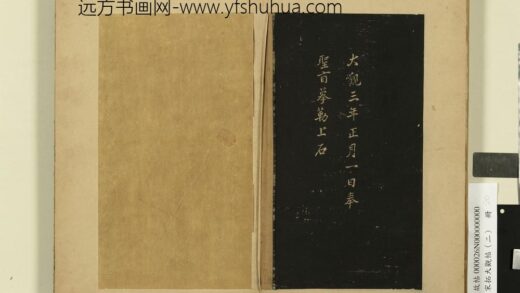 远方书画网-www.yfshuhua.com
大觀三年正月一日奉
聖旨摹勒上石
宋拓大觀帖(二) 冊